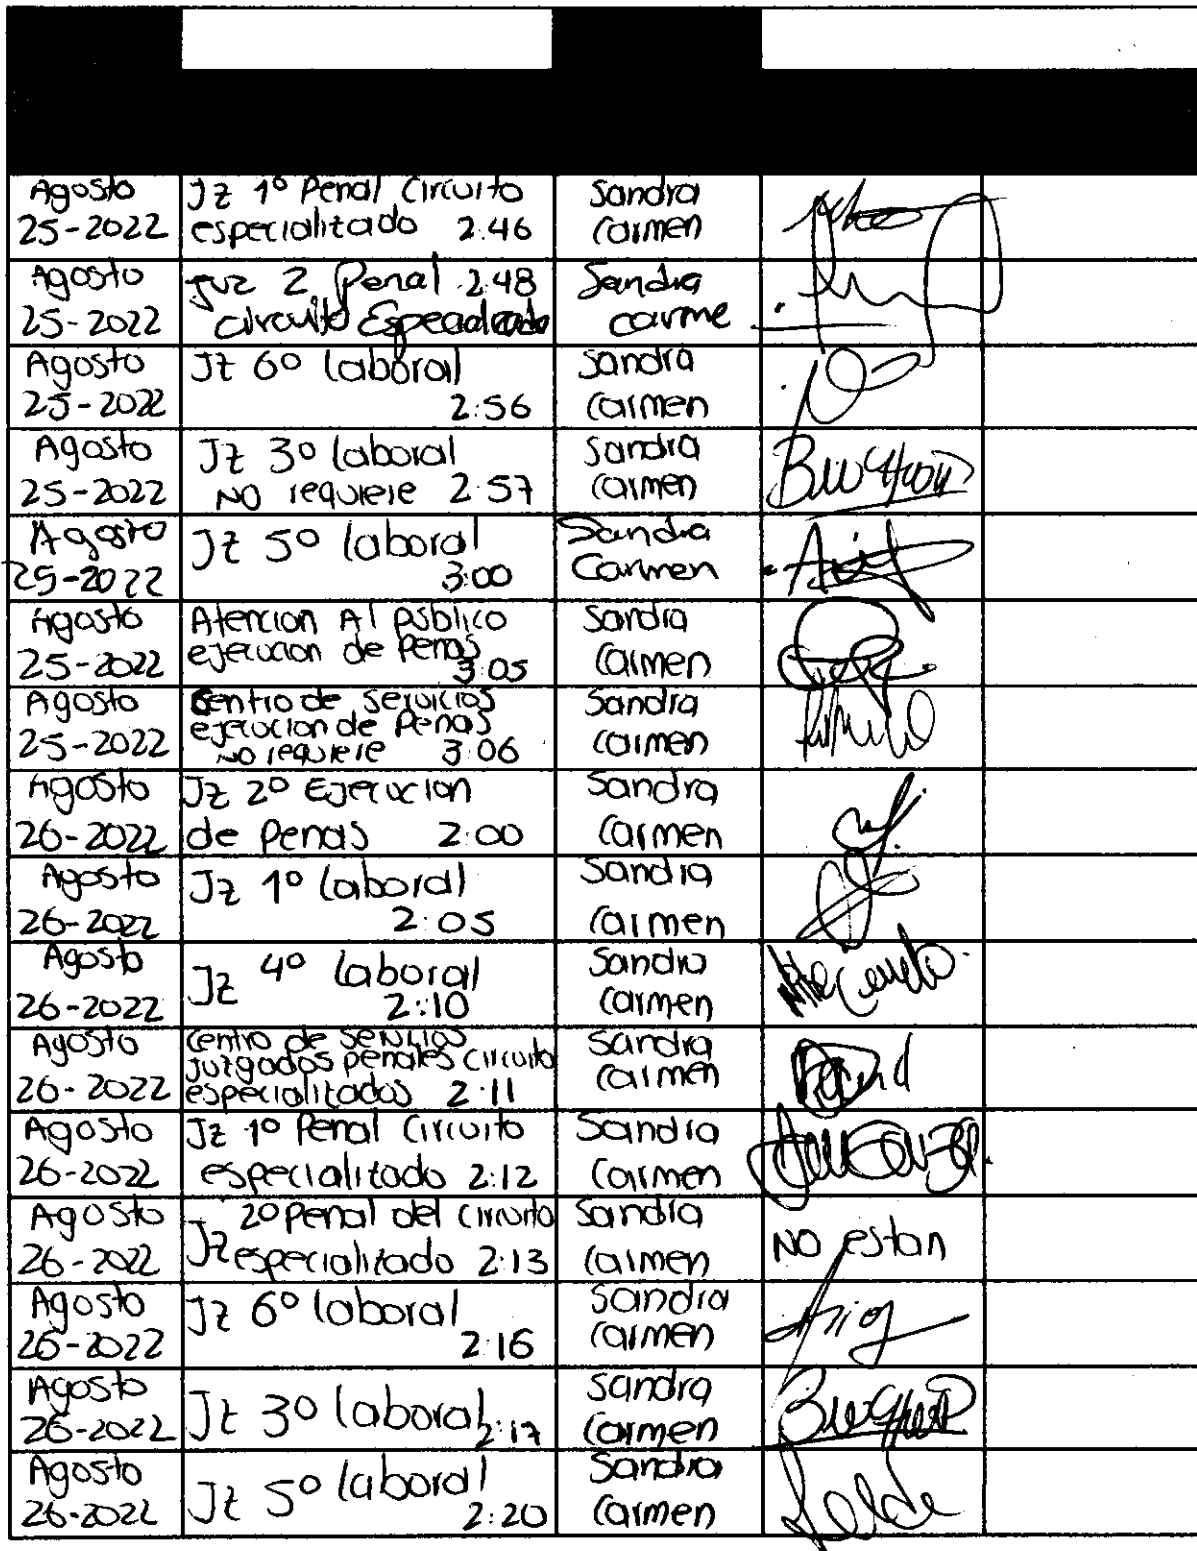 Agosto
25-2022
Jz 1º Penal Circuito
especialitado 2:46
Sandra
Carmen
Agosto
25-2022
Juz 2 Penal 2:48
circuito
Sandra
carme
Agosto
25-2022
Jz 6º laboral
2:56
Sandra
Carmen
Agosto
25-2022
Jz 3º laboral
NO requiere 2:57
Sandra
Carmen
Agosto
25-2022
Jz 5º laboral
3:00
Sandra
Carmen
Agosto
25-2022
Atencion Al público
ejecucion de Penas
3:05
Sandra
Carmen
Agosto
25-2022
Centro de servicios
ejecucion de Penas
NO requiere 3:06
Sandra
Carmen
Agosto
26-2022
Jz 2º Ejecucion
de Penas 2:00
Sandra
Carmen
Agosto
26-2022
Jz 1º laboral
2:05
Sandra
Carmen
Agosto
26-2022
Jz 4º laboral
2:10
Sandra
Carmen
Agosto
26-2022
Centro de servicios
juzgados penales circuito
especialitados 2:11
Sandra
Carmen
Agosto
26-2022
Jz 1º Penal Circuito
especialitado 2:12
Sandra
Carmen
Agosto
26-2022
Jz 2º penal del circuito
especialitado 2:13
Sandra
Carmen
NO estan
Agosto
26-2022
Jz 6º laboral
2:16
Sandra
Carmen
Agosto
26-2022
Jz 3º laboral
2:17
Sandra
Carmen
Agosto
26-2022
Jz 5º laboral
2:20
Sandra
Carmen